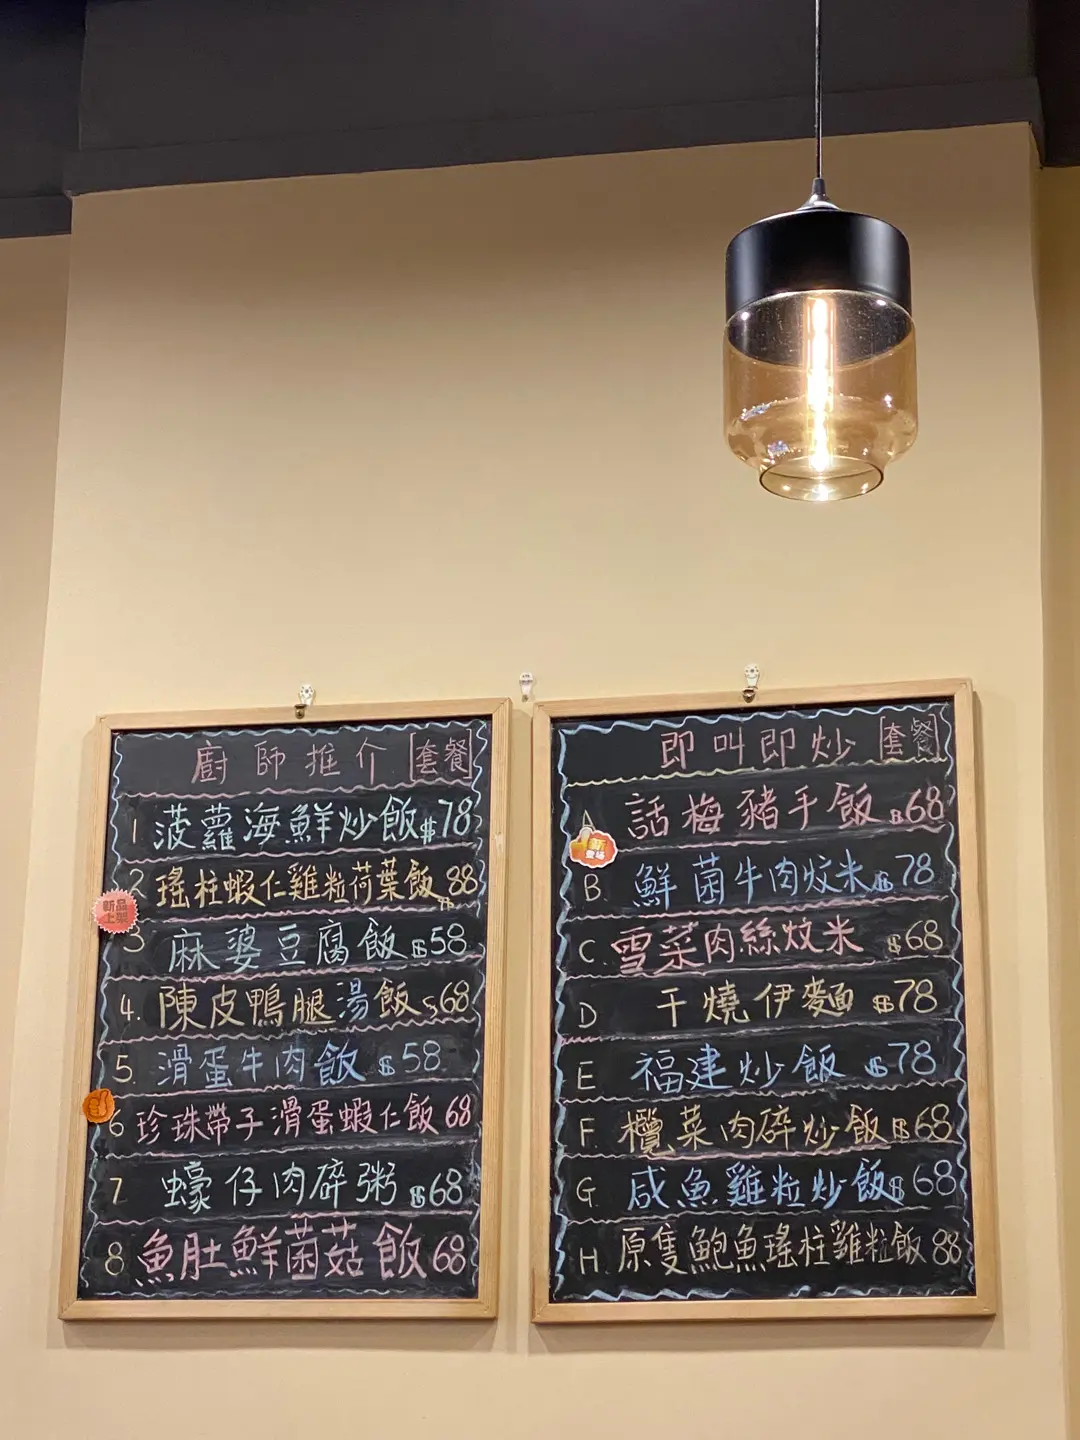 廚師推介 [套餐]
1 菠蘿海鮮炒飯$78
2 瑤柱蝦仁雞粒荷葉飯88
$
新品
上架
3 麻婆豆腐飯$58
4. 陳皮鴨腿湯飯$68
5. 滑蛋牛肉飯 $58
6 珍珠帶子滑蛋蝦仁飯 68
7 蠔仔肉碎粥 $68
8 魚肚鮮菌菇飯68
即叫即炒 [套餐]
A 話梅豬手飯 $68
新
登场
B. 鮮菌牛肉炆米$ 78
C 雪菜肉絲炆米 $68
D 干燒伊麵 $78
E 福建炒飯 $78
F 欖菜肉碎炒飯$68
G 咸魚雞粒炒飯$ 68
H 原隻鮑魚瑤柱雞粒飯 88